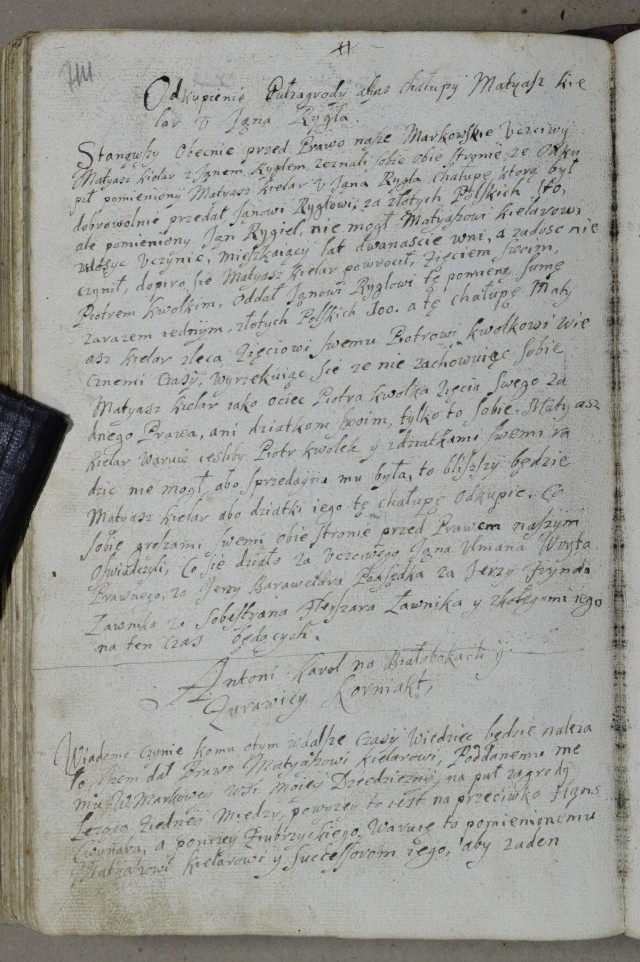 Odkupienie Pułzagrody abas chałupy Matyasz Kie
lar u Jana Rygla.
Stanąwszy Obecnie przed Prawo nasze Markowskie Uczciwy
Matyasz Kielar z Janem Ryglem, zeznali sobie obie stronie, ze Odku
pił pomieniony Matyasz Kielar U Jana Rygla chałupę, ktorą był
dobrowolnie przedał Janowi Ryglowi, za złotych Polskich Sto,
ale pomieniony Jan Rygiel, nie mogł Matyaszowi Kielarowi
Uczynic, mieszkaiący lat dwanascie wni, a zadosc nie
czynił, dopiro, sie Matyasz Kielar powrocił, zięciem swoim,
Piotrem Kwolkim, Oddał Janowi Ryglowi tę pomieną sumę
zarazem iednym, złotych Polskich 100. a tę chałupę Maty
asz Kielar zleca zięciowi swemu Piotrowi Kwolkowi wie
cznemi czasy, wyrzekuiąc się ze nie zachowuiąc sobie
Matyasz Kielar iako ociec Piotra Kwolka zięcia swego za
dnego Prawa, ani dziatkom swoim, tylko to sobie Matyasz
Kielar waruie iesliby Piotr Kwolek y zdziatkami swemi ra
dzic nie mogł, abo sprzedayna mu była, to bliszszy będzie
Matyasz Kielar abo dziatki iego tę chałupę Odkupic. Co
sobie groszami swemi obie stronie przed Prawem naszym
Oswiadczyli, Co się działo za Uczciwego Jana Ulmana Woyta
Prawnego, za Jerzy Podsędka za Jerzy
Ławnika za Fleyszara Ławnika y zkolegami iego
na ten czas będących.
Antoni Karol na Białobokach y
Zurawicy Korniakt,
Wiadomo czynie komu otym wdalsze czasy Wiedziec będzie nalezało,
Izem dał Prawo Matyaszowi Kielarowi, Poddanemu me
mu W Markowey wsi moiey Dziedziczney, na puł zagrody
Lezącą Zedney Miedzy, powyzey to iest na przeciwko Hans
Cwynara, a ponizey Zubrzyckiego, Waruię to pomienionemu
Matyaszowi Kielarowi y Successorom iego, aby zaden